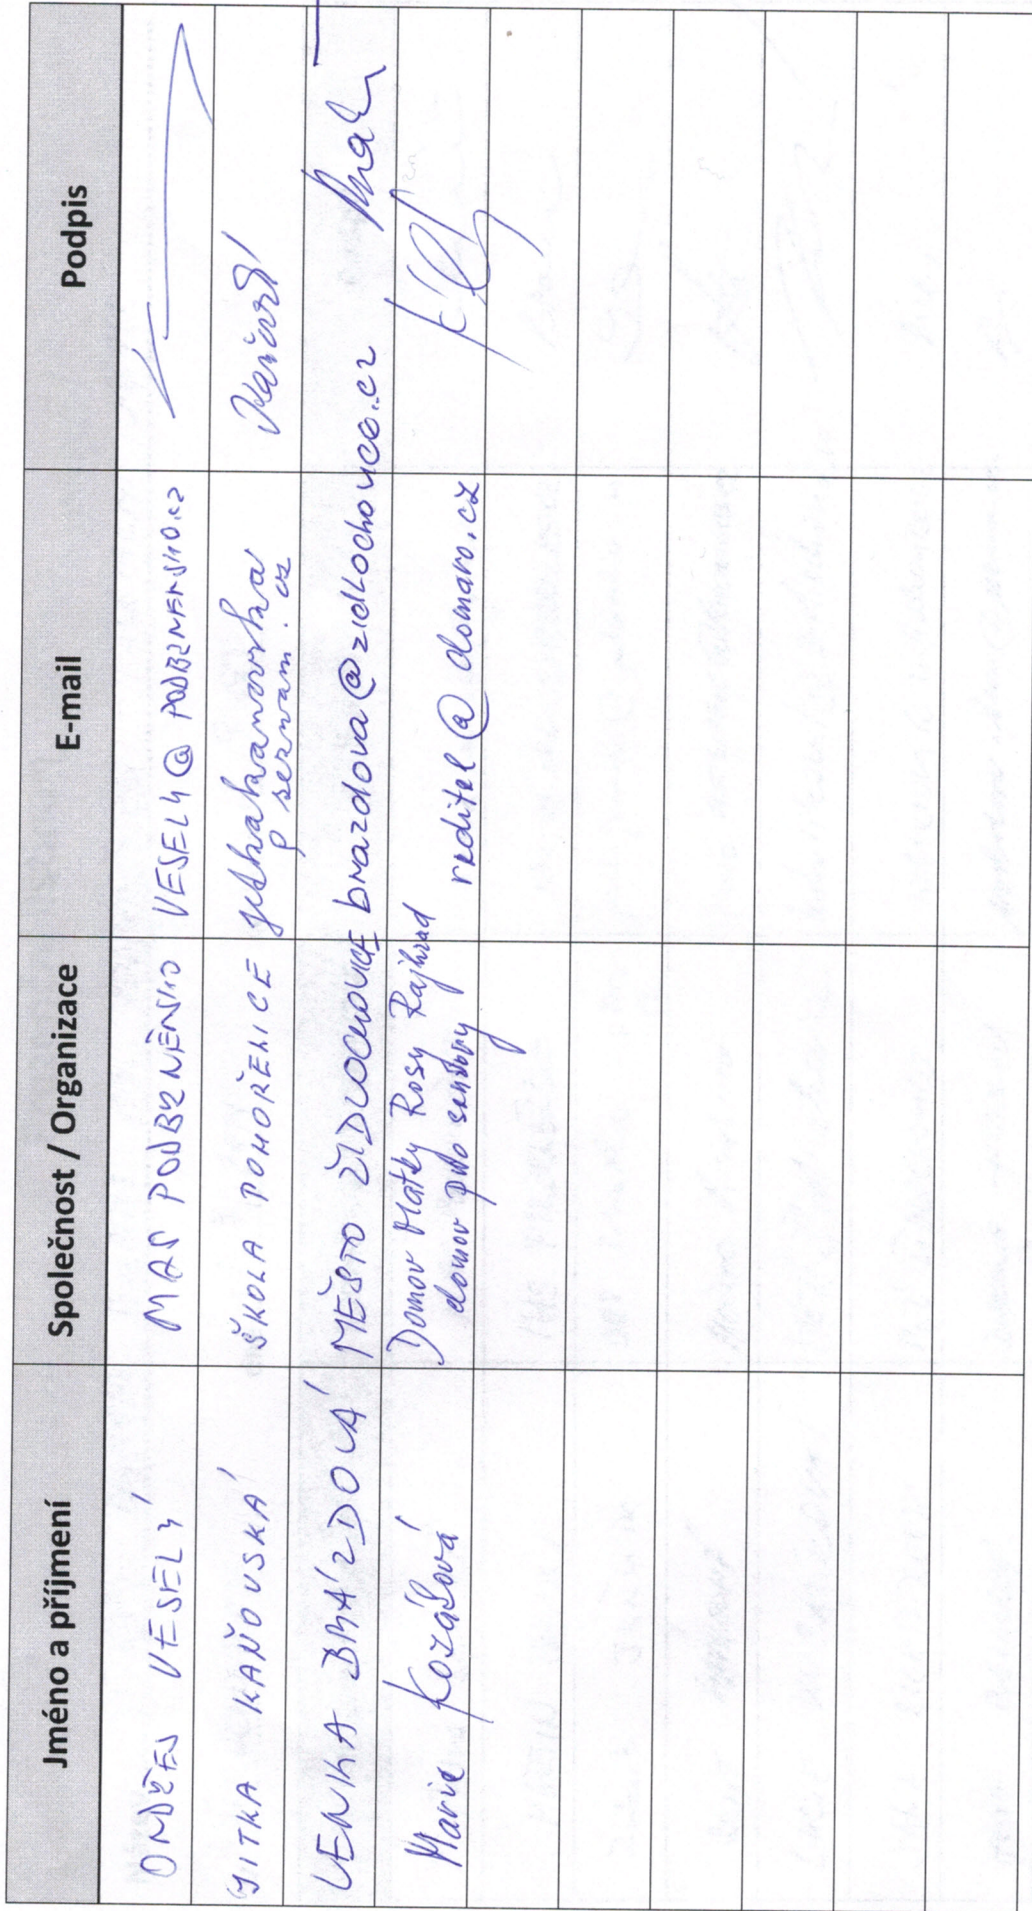 Jméno a příjmení Společnost / Organizace E-mail Podpis
ONDŘEJ VESELÝ MAS PODBRNĚNSKO VESELY@PODBRNENSKO.CZ
JITKA KAŇOVSKÁ ŠKOLA POHOŘELICE jitkakanovska
@ seznam.cz
LENKA BRÁZDOVÁ MĚSTO ŽIDLOCHOVICE brazdova@zidlochovice.cz
Marie Kozáková Domov Matky Rosy Rajhrad
domov pro seniory reditel@domaro.cz